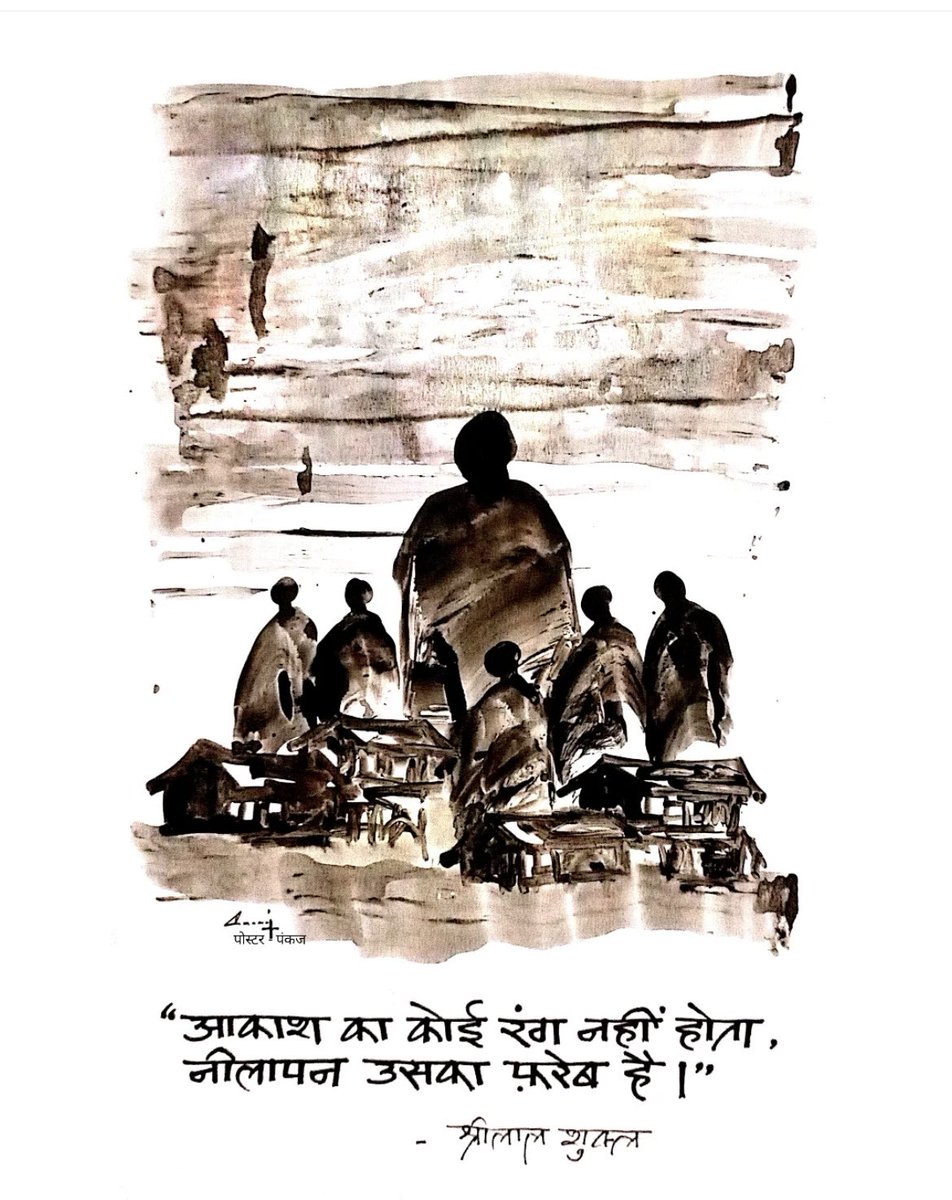 पोस्टर - पंकज
“आकाश का कोई रंग नहीं होता,
नीलापन उसका फ़रेब है।”
- श्रीलाल शुक्ल